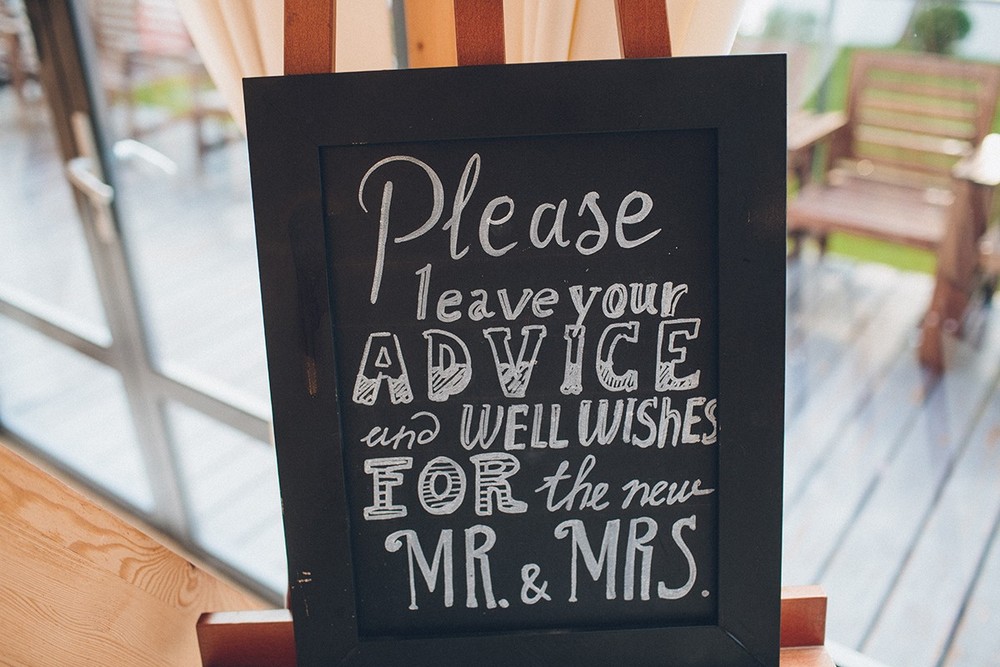 Please
leave your
ADVICE
and WELL WISHES
FOR the new
MR. & MRS.